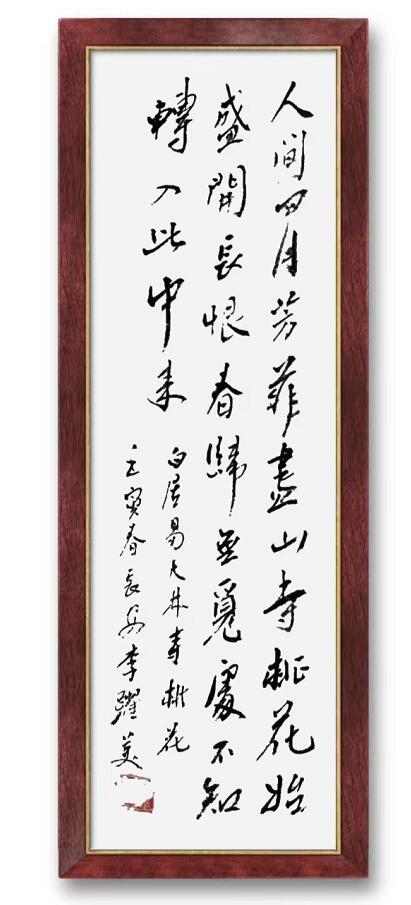 人間四月芳菲盡山寺桃花始
盛開長恨春歸無覓處不知
轉入此中来
白居易大林寺桃花
壬寅春長安李躍美